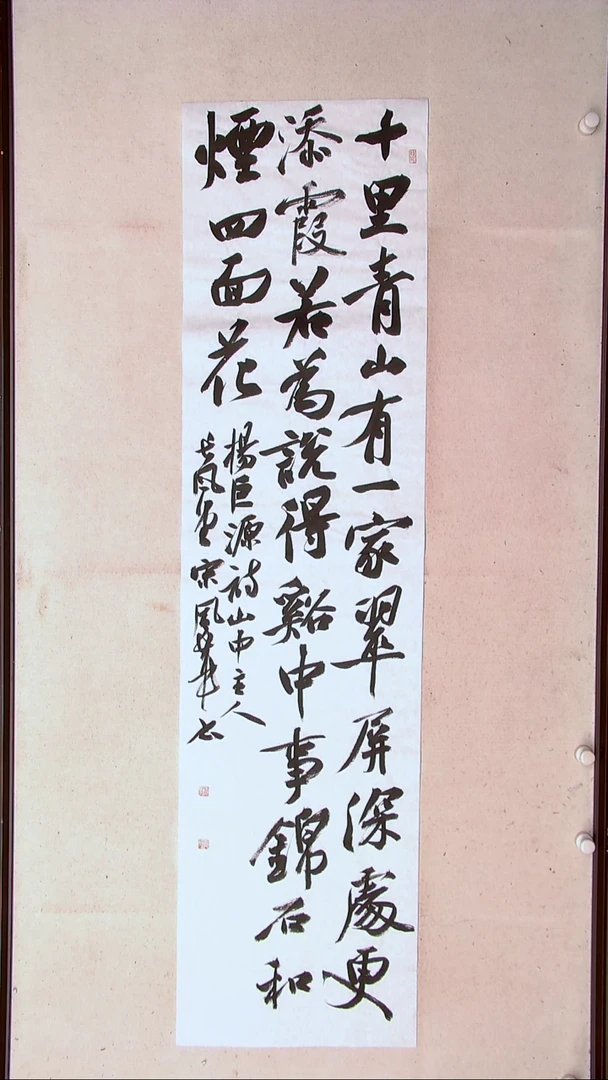 十里青山有一家翠屏深處更
添霞若為說得谿中事錦石和
煙四面花
楊巨源詩山中主人
長風堂宋風華书